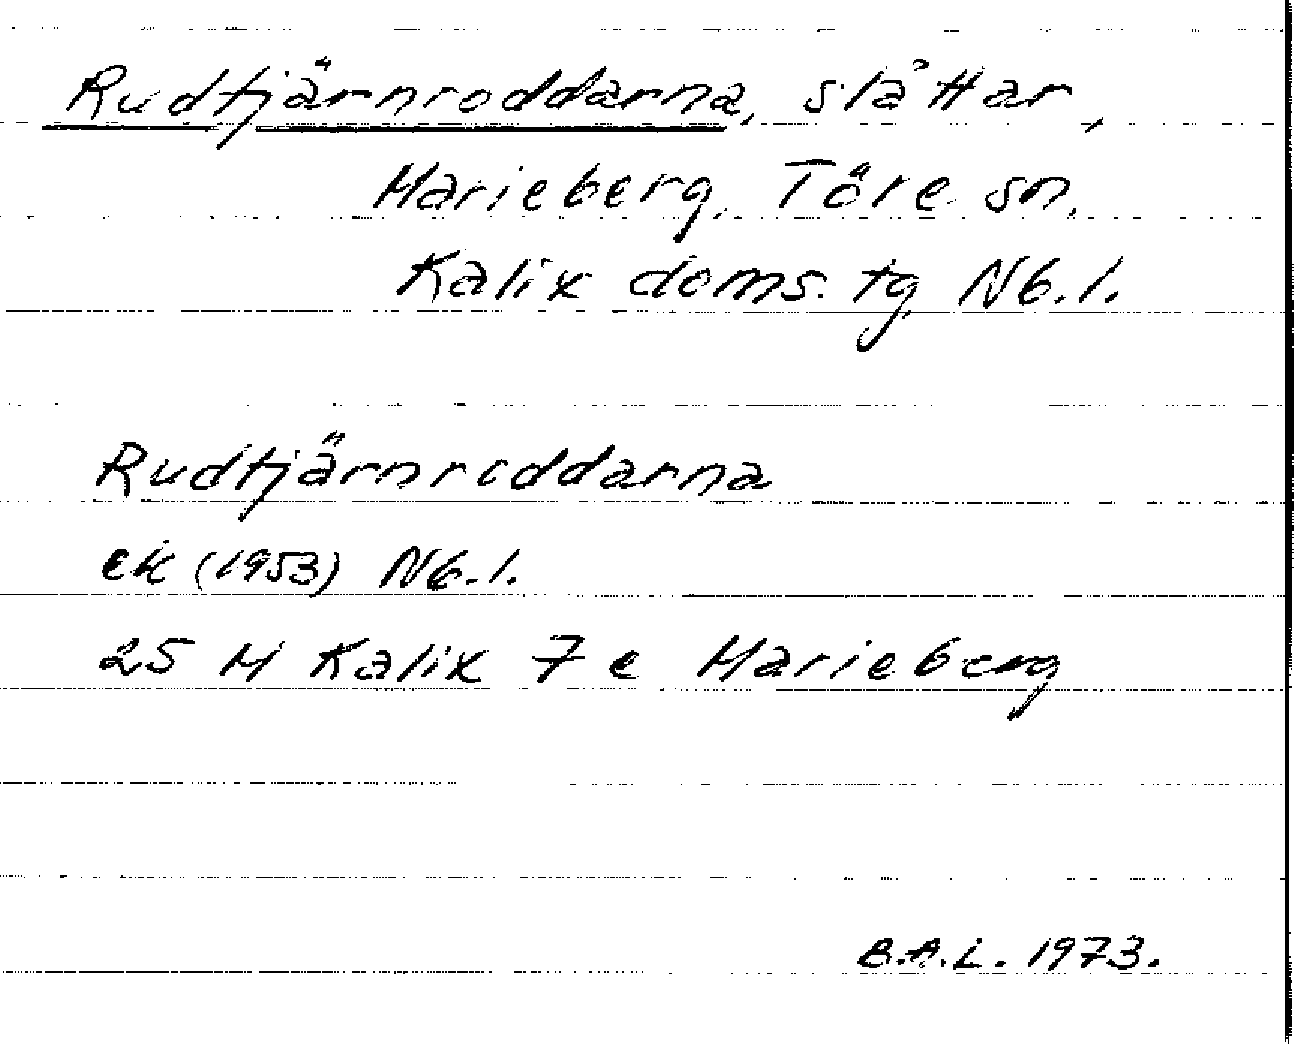 Rudtjärnroddarna, slåttar,
Marieberg, Töre sn,
Kalix doms. tg Nb. l.
Rudtjärnroddarna
ek (1953) Nb. l.
25 M Kalix 7 e Marieberg
B.A.L. 1973.